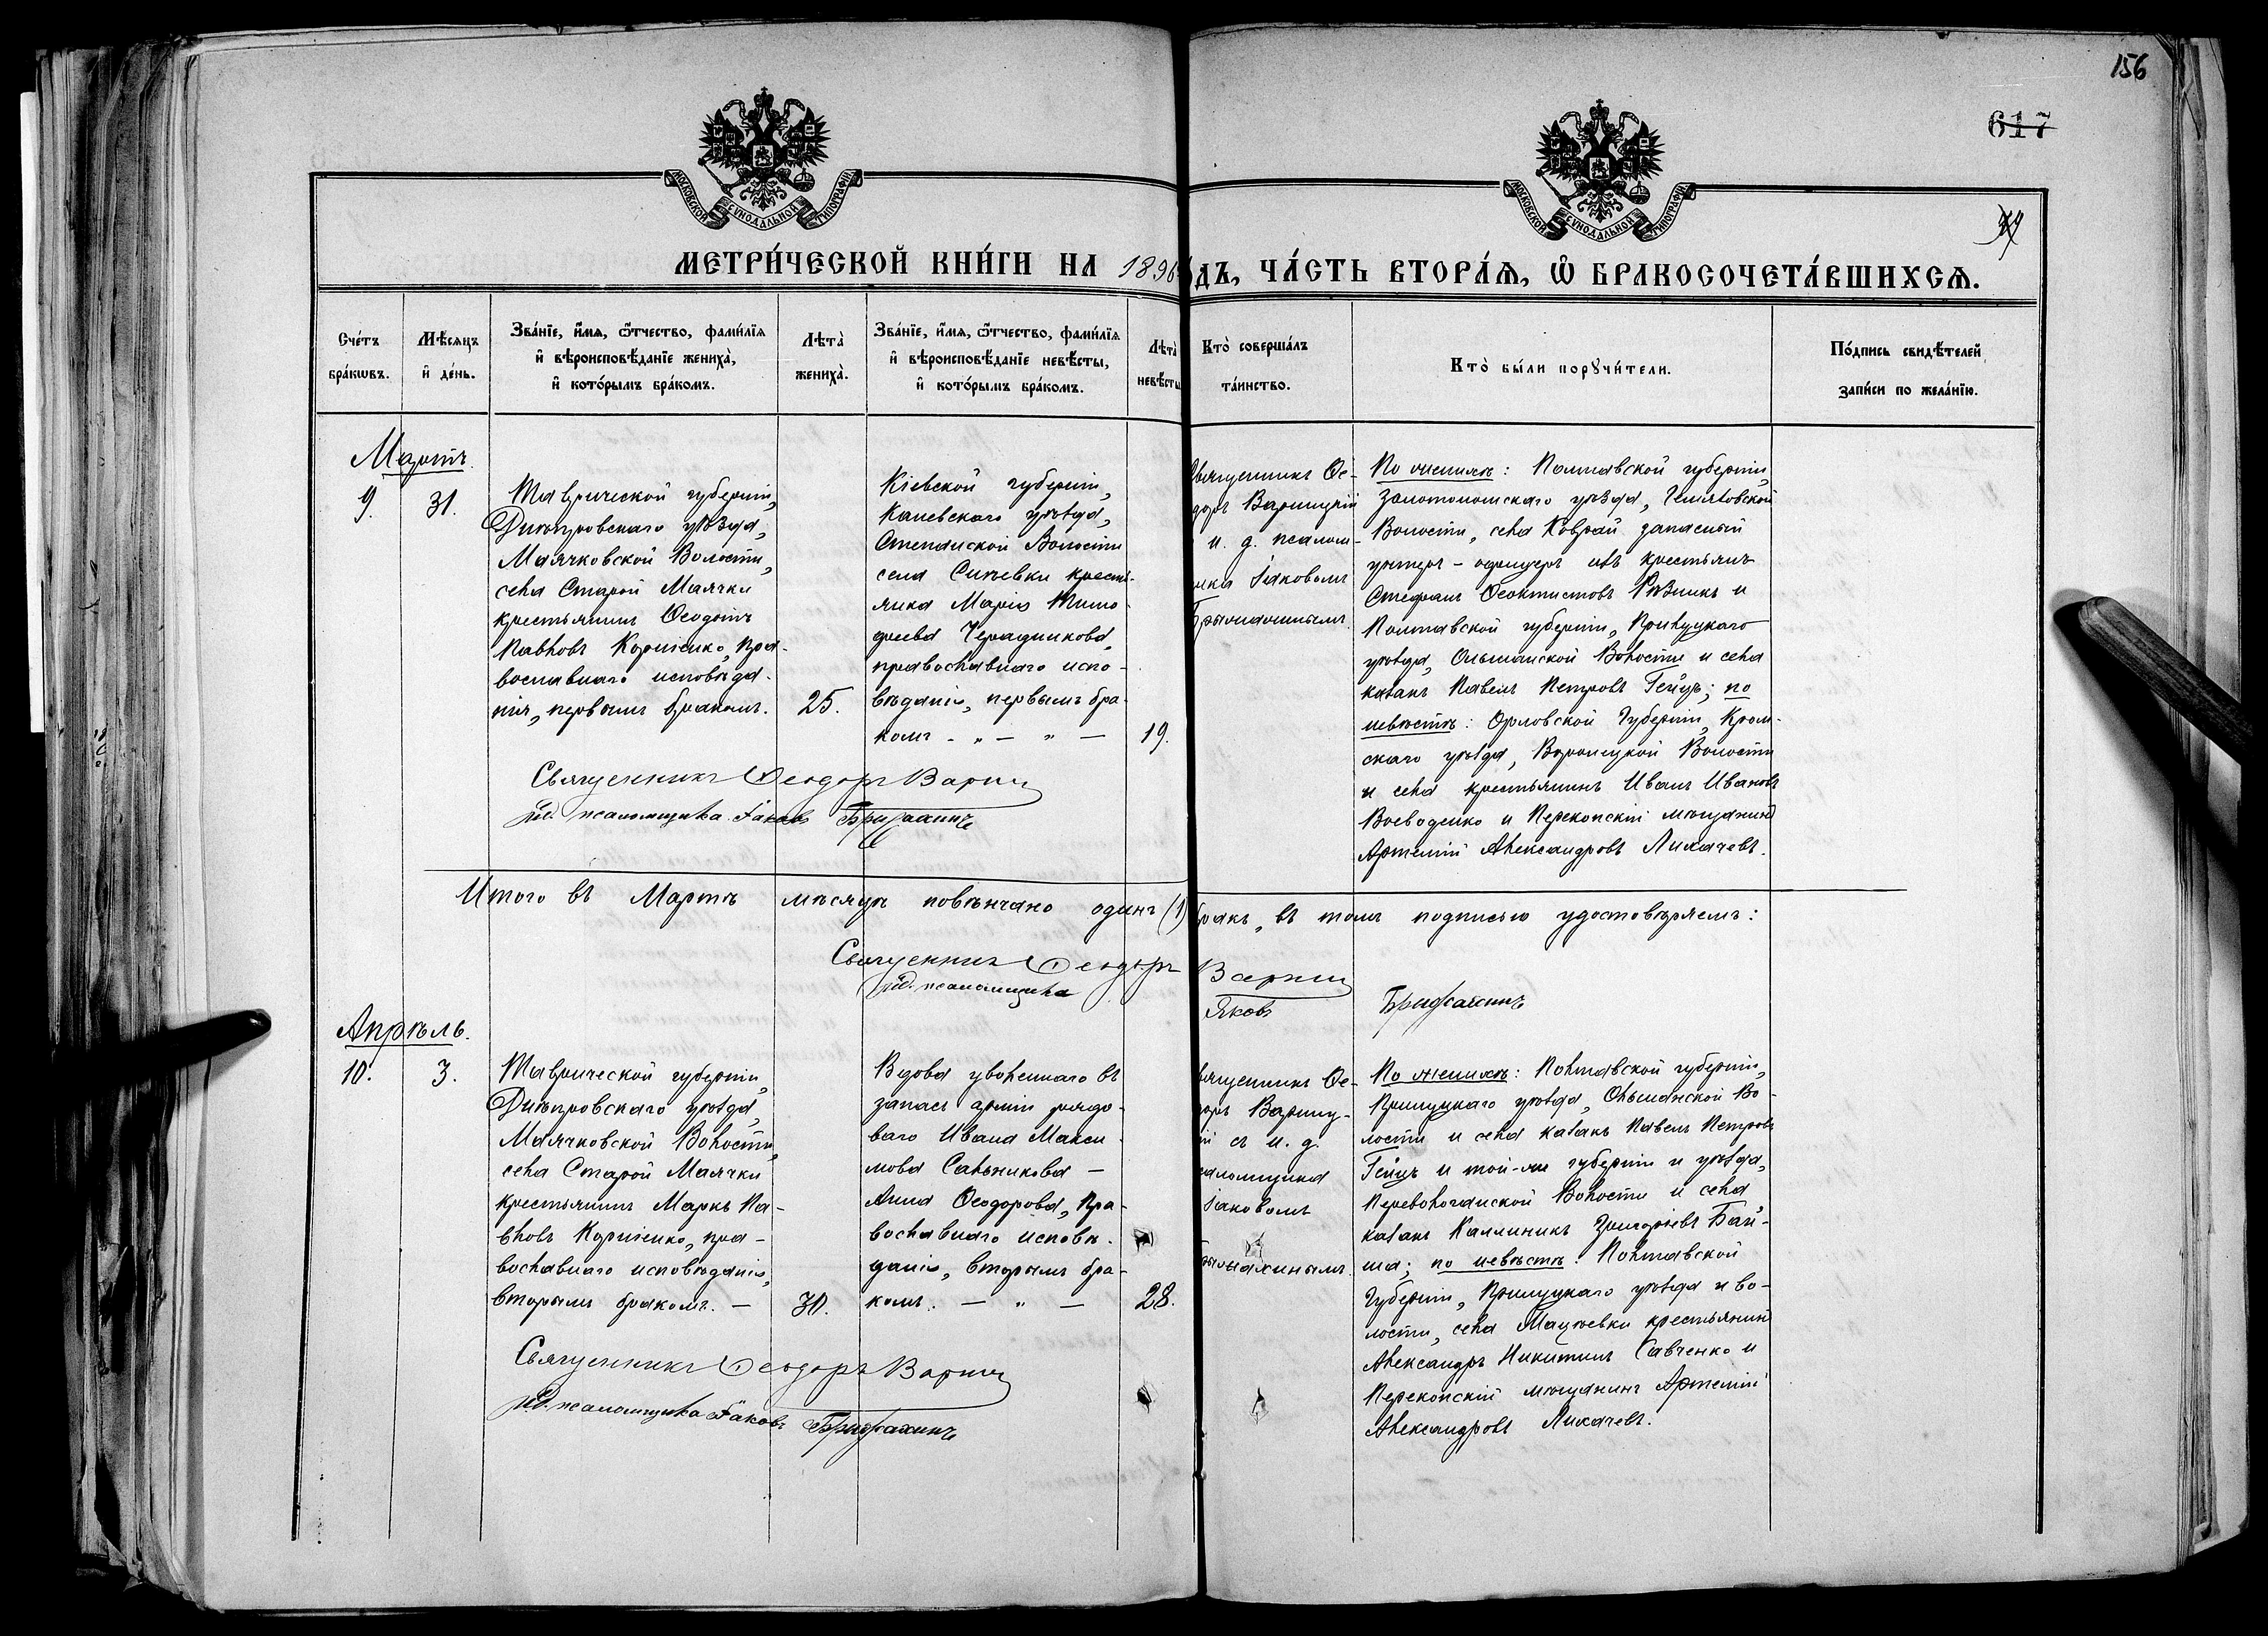 156
617
МОСКОВСКОЙ СѴНОДАЛЬНОЙ ТИПОГРАФІИ
МОСКОВСКОЙ СѴНОДАЛЬНОЙ ТИПОГРАФІИ
МЕТРИ́ЧЕСКОЙ КНИ́ГИ НА 1896
ДЪ, ЧА́СТЬ ВТОРА́Ѧ, Ѽ БРАКОСОЧЕТА́ВШИХСѦ.
Сче́тъ
бра́кѡвъ.
Мѣ́сяцъ
и҆ де́нь.
Зва́нїе, и҆́мя, ѻ҆́тчество, фами́лїя
и҆ вѣроисповѣ́данїе жениха̀,
и҆ кото́рымъ бра́комъ.
Лѣта̀
жениха̀.
Зва́нїе, и҆́мя, ѻ҆́тчество, фами́лїя
и҆ вѣроисповѣ́данїе невѣ́сты,
и҆ кото́рымъ бра́комъ.
Лѣта̀
невѣ́сты
Кто̀ соверша́лъ
та́инство.
Кто̀ бы́ли порꙋчи́тели.
По́дпись свидѣ́телей
за́писи по жела́нїю.
Мартъ.
9.
31.
Таврической губерніи,
Днѣпровскаго уѣзда,
Маячковской Волости,
села Старой Маячки
крестьянинъ Ѳеодотъ
Павловъ Корніенко, пра-
вославнаго исповѣда-
нія, первымъ бракомъ.
25.
Кіевской губерніи,
Каневскаго уѣзда,
Степанской Волости
села Синевки кресть-
янка Марія Тимо-
феева Чередникова,
православнаго испо-
вѣданія, первымъ бра-
комъ - „ — „ —
19.
Священникъ Ѳе-
доръ Варницкій
и. д. псалом-
ика Іаковомъ
По женихѣ: Полтавской губерніи,
Золотоношскаго уѣзда, Гельмязовской
Волости, села Коврай запасный
унтеръ-офицеръ изъ крестьянъ
Стефанъ Ѳеоктистовъ Рѣзникъ и
Полтавской губерніи, Прилуцкаго
уѣзда, Ольшанской Волости и села
казакъ Павелъ Петровъ Гейцъ; по
невѣстѣ: Орловской Губерніи, Кром-
скаго уѣзда, Воронецкой Волости
и села крестьянинъ Иванъ Ивановъ
Воеводенко и Перекопскій мѣщанинъ
Артемій Александровъ Лихачевъ.
Священникъ Ѳеодоръ Варниц
и.д. псаломщика Іаковъ
Итого въ Мартѣ мѣсяцѣ повѣнчано одинъ (1)
бракъ, въ томъ подписью удостовѣряемъ:
Священникъ Ѳеодоръ Варниц
и.д. псаломщика Яковъ
Апрѣль.
10.
3.
Таврической губерніи,
Днѣпровскаго уѣзда,
Маячковской Волости,
села Старой Маячки
крестьянинъ Маркъ Па-
вловъ Корніенко, пра-
вославнаго исповѣданія,
вторымъ бракомъ. —
30.
Вдова уволеннаго въ
запасъ арміи рядо-
ваго Ивана Макси-
мова Сальникова —
Анна Ѳеодорова, Пра-
вославнаго исповѣ-
данія, вторымъ бра-
комъ. — „ —
28.
вященникъ Ѳе-
доръ Варниц-
ій съ и. д.
саломщика
Іаковомъ
По женихѣ: Полтавской губерніи,
Прилуцкаго уѣзда, Ольшанской Во-
лости и села казакъ Павелъ Петровъ
Гейцъ и той-же губерніи и уѣзда,
Переволочанской Волости и села
казакъ Каллиникъ Григоріевъ Бай-
ша; по невѣстѣ: Полтавской
Губерніи, Прилуцкаго уѣзда и во-
лости, села Мацѣевки крестьянинъ
Александръ Никитинъ Савченко и
Перекопскій мѣщанинъ Артемій
Александровъ Лихачевъ.
Священникъ Ѳеодоръ Варниц
и.д. псаломщика Іаковъ